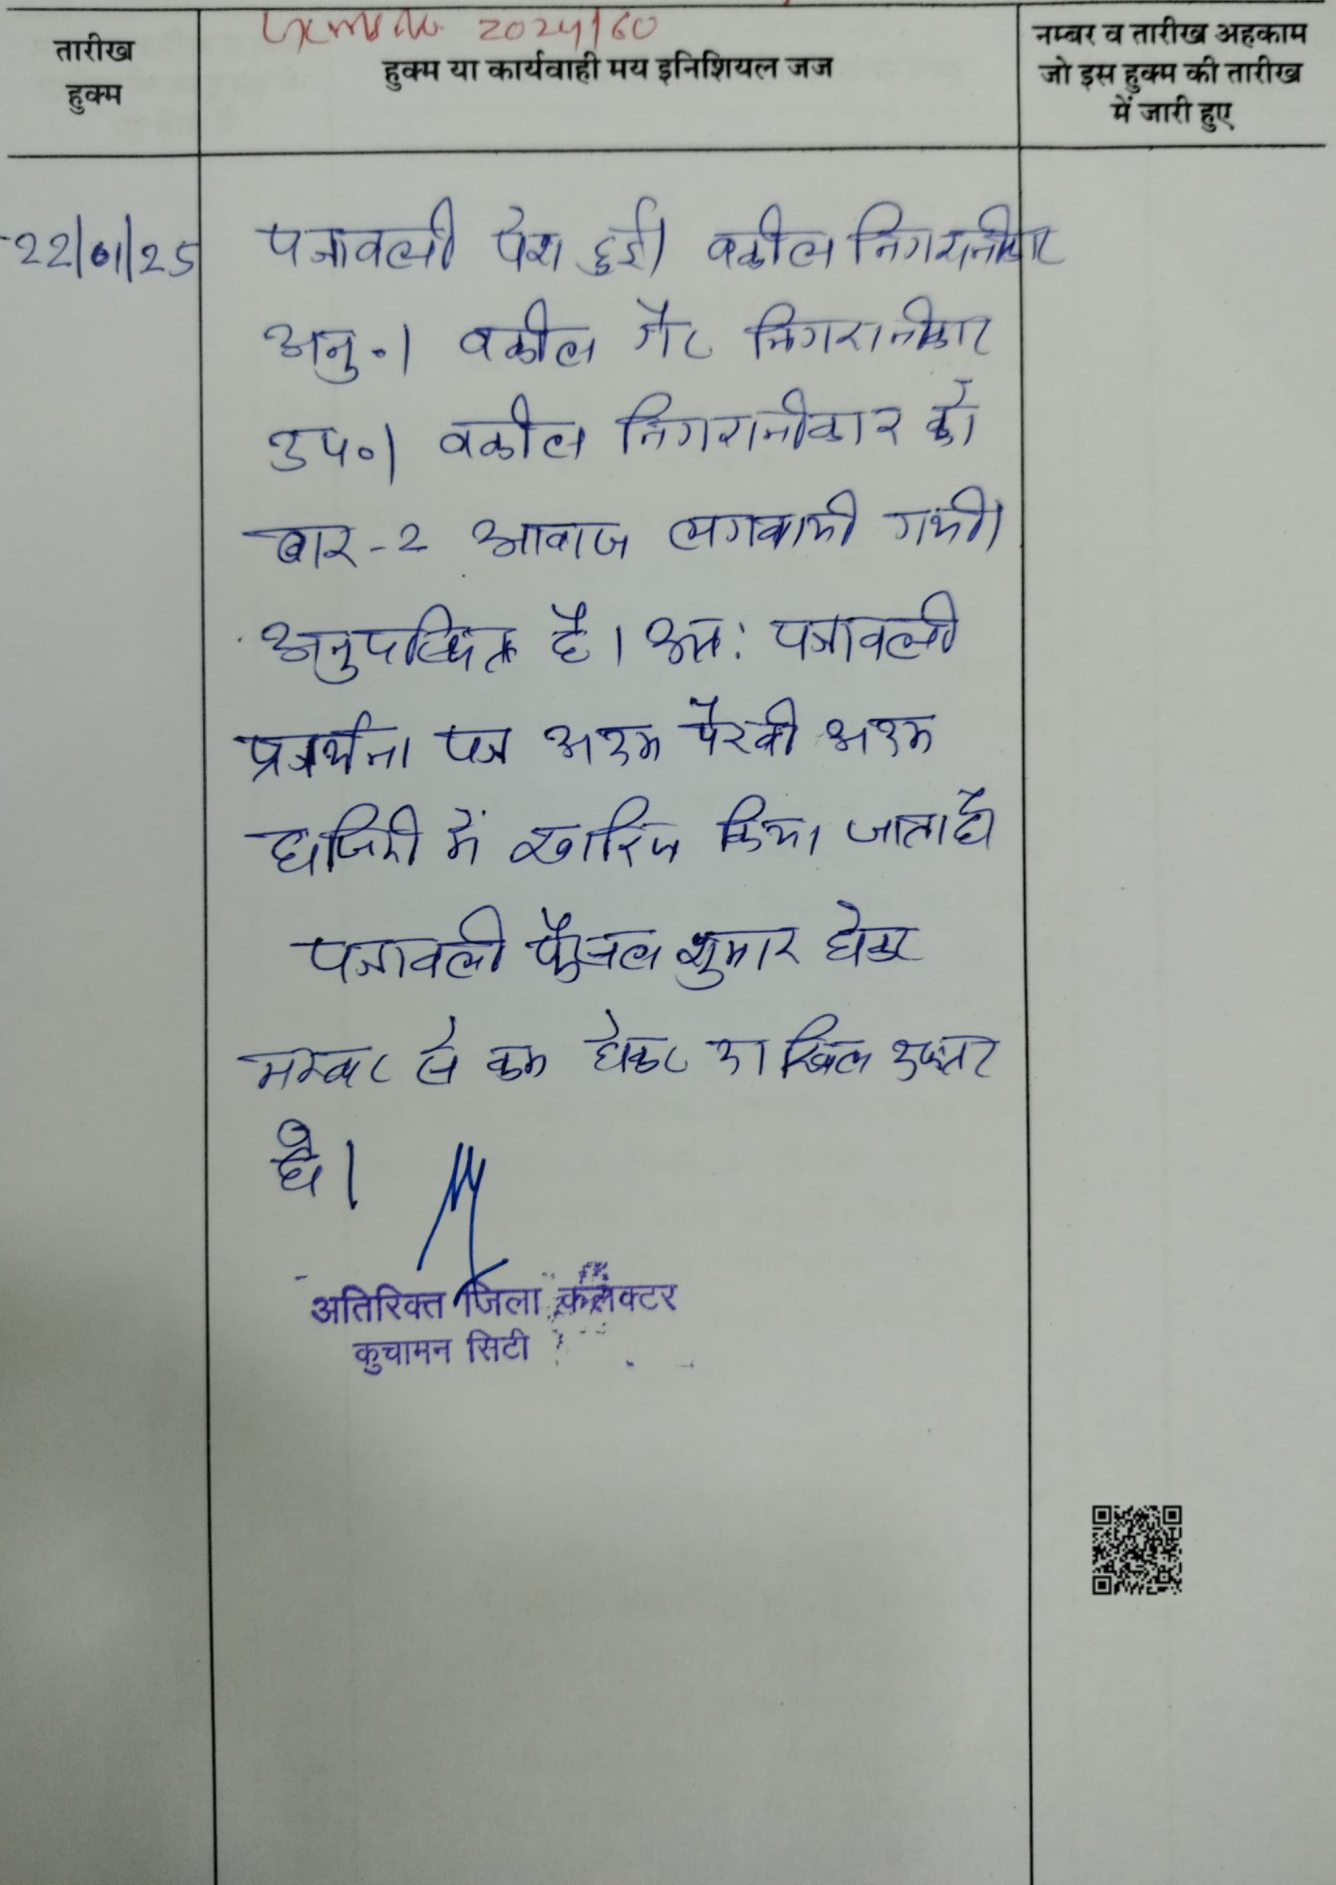 2024/60
तारीख
हुक्म
हुक्म या कार्यवाही मय इनिशियल जज
नम्बर व तारीख अहकाम
जो इस हुक्म की तारीख
में जारी हुए
22/01/25
पत्रावली पेश हुई। वकील निगरानीकार
अनु॰। वकील गैर निगरानीकार
उप॰। वकील निगरानीकार को
बार-2 आवाज लगवायी गयी।
अनुपस्थित है। अतः पत्रावली
प्रार्थना पत्र अदम पैरवी अदम
हाजिरी में खारिज किया जाता है
पत्रावली फैसल शुमार होकर
नम्बर से कम होकर दाखिल दफ्तर
हो।
अतिरिक्त जिला कलेक्टर
कुचामन सिटी